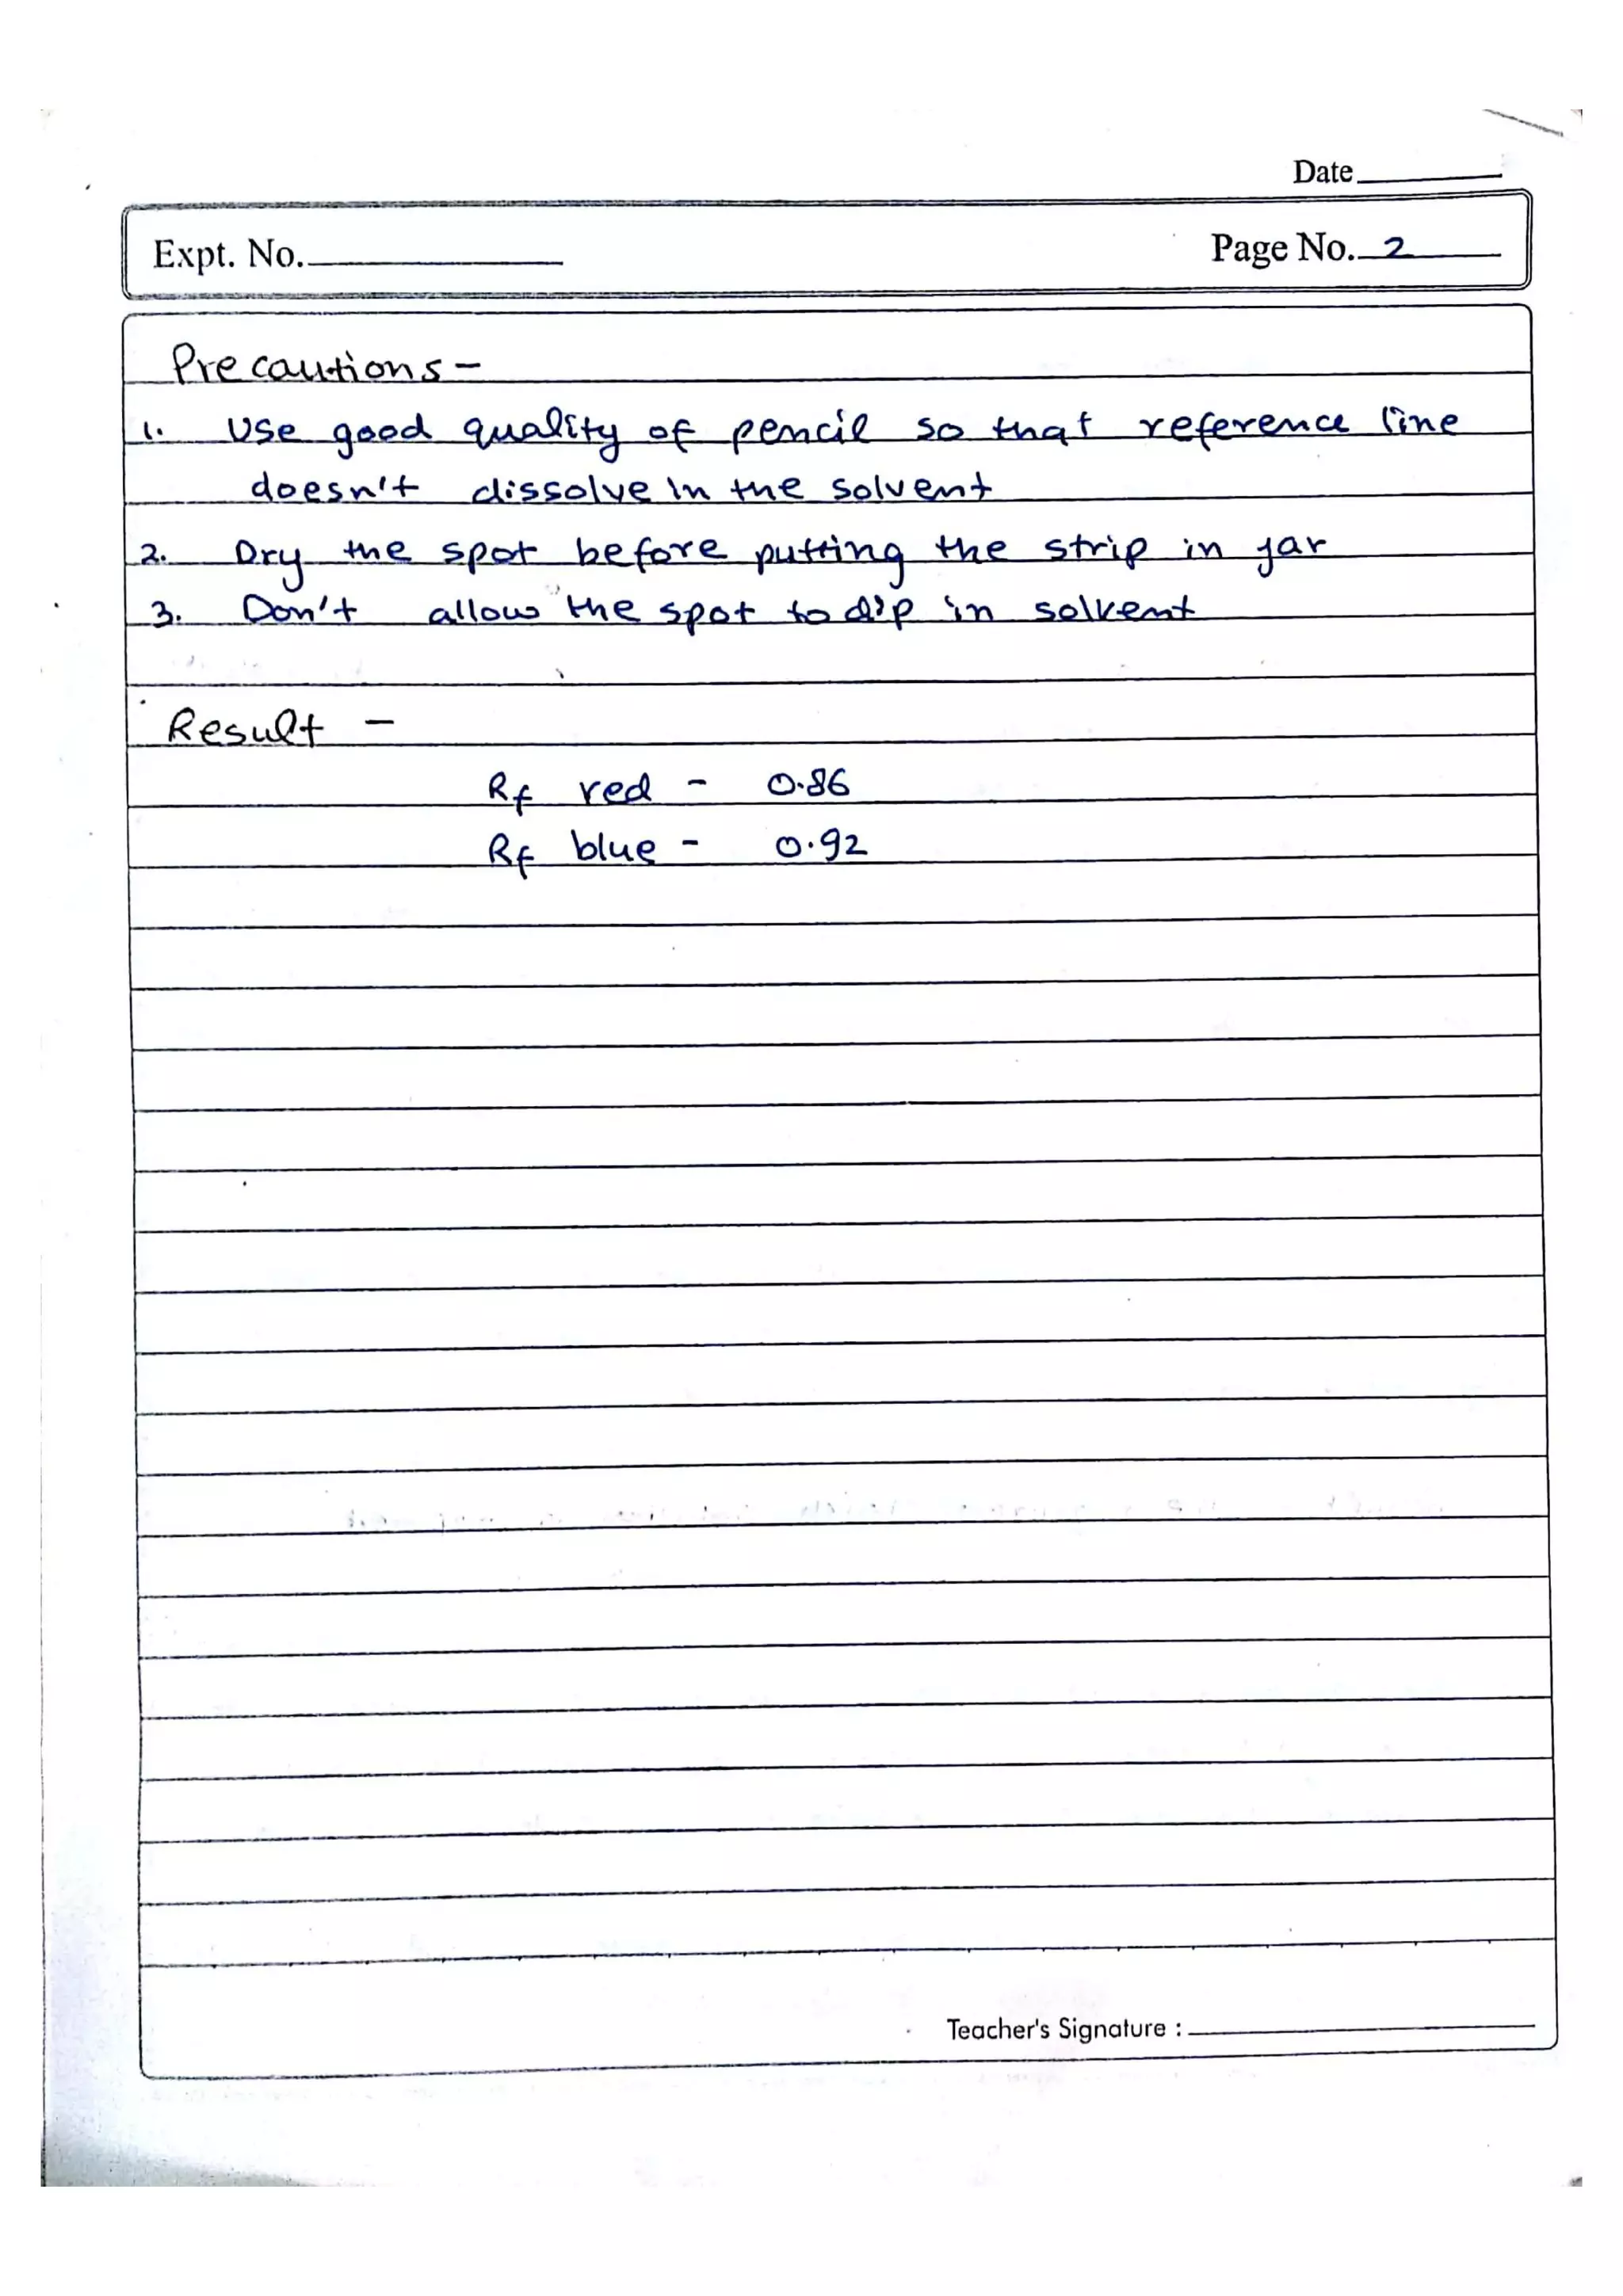 Date
Expt. No.
Page No. 2
Precautions -
1. Use good quality of pencil so that reference line
doesn't dissolve in the solvent
2. Dry the spot before putting the strip in jar
3. Don't allow the spot to dip in solvent
Result -
Rf red - 0.86
Rf blue - 0.92
Teacher's Signature :